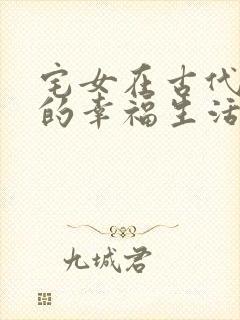 宅女在古代
的幸福生活
九城君